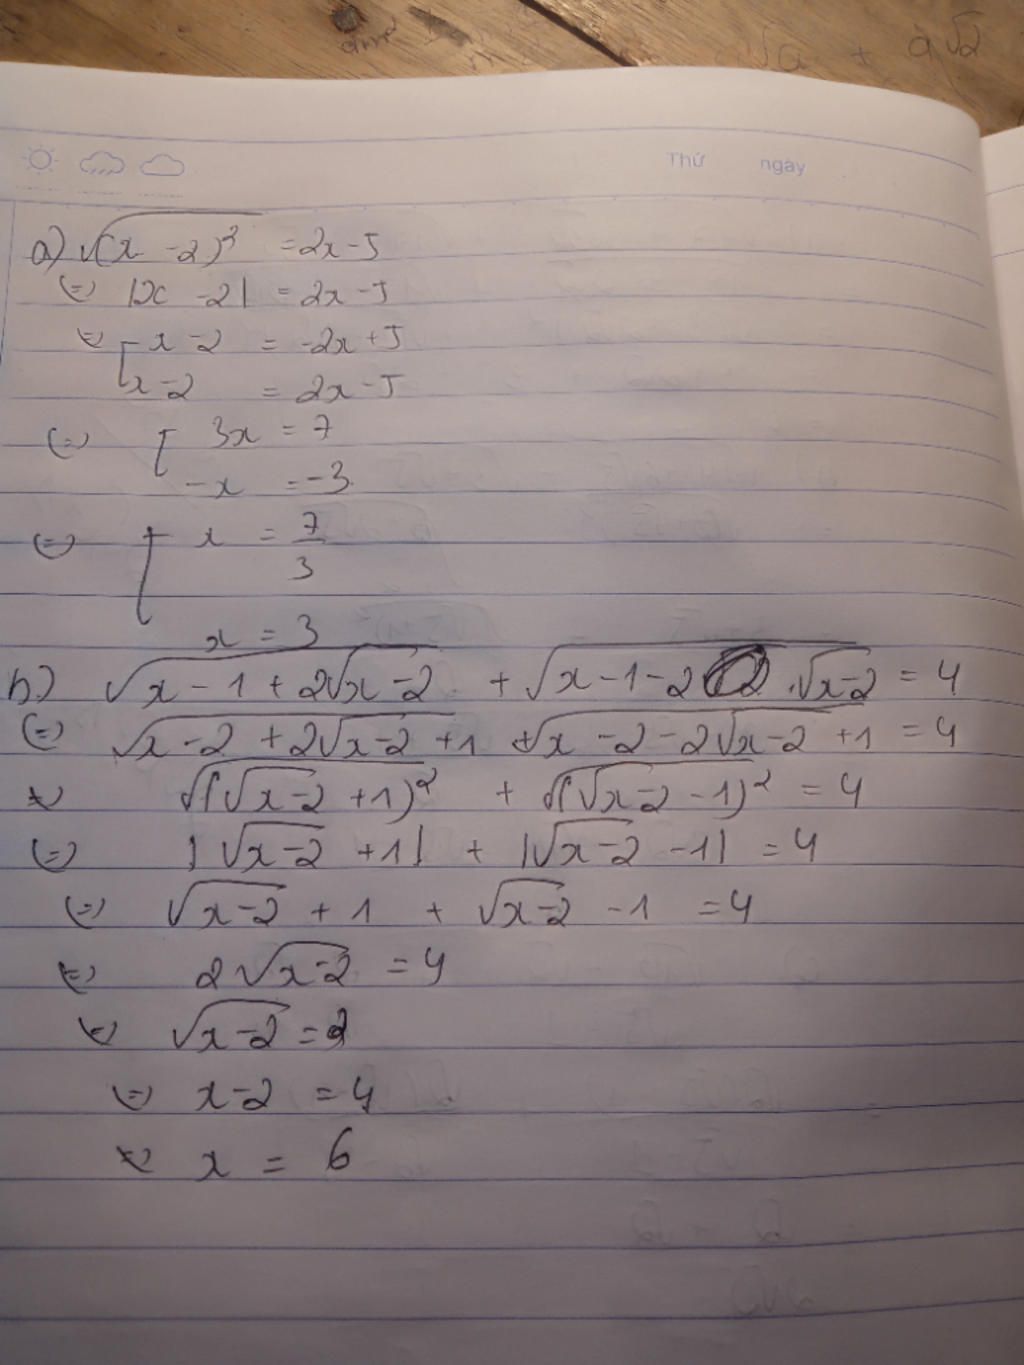 a√2
√a + 
Thứ ngày
a) √(x - 2)² = 2x - 5
(=) |x - 2| = 2x - 5
(=) [ x - 2 = -2x + 5
x - 2 = 2x - 5
(=) [ 3x = 7
-x = -3
(=) [ x = 7/3
x = 3
b) √x - 1 + 2√x - 2 + √x - 1 - 2 . √x - 2 = 4
(=) √x - 2 + 2√x - 2 + 1 + √x - 2 - 2√x - 2 + 1 = 4
(=) √(√x - 2 + 1)² + √(√x - 2 - 1)² = 4
(=) |√x - 2 + 1| + |√x - 2 - 1| = 4
(=) √x - 2 + 1 + √x - 2 - 1 = 4
(=) 2√x - 2 = 4
(=) √x - 2 = 2
(=) x - 2 = 4
(=) x = 6